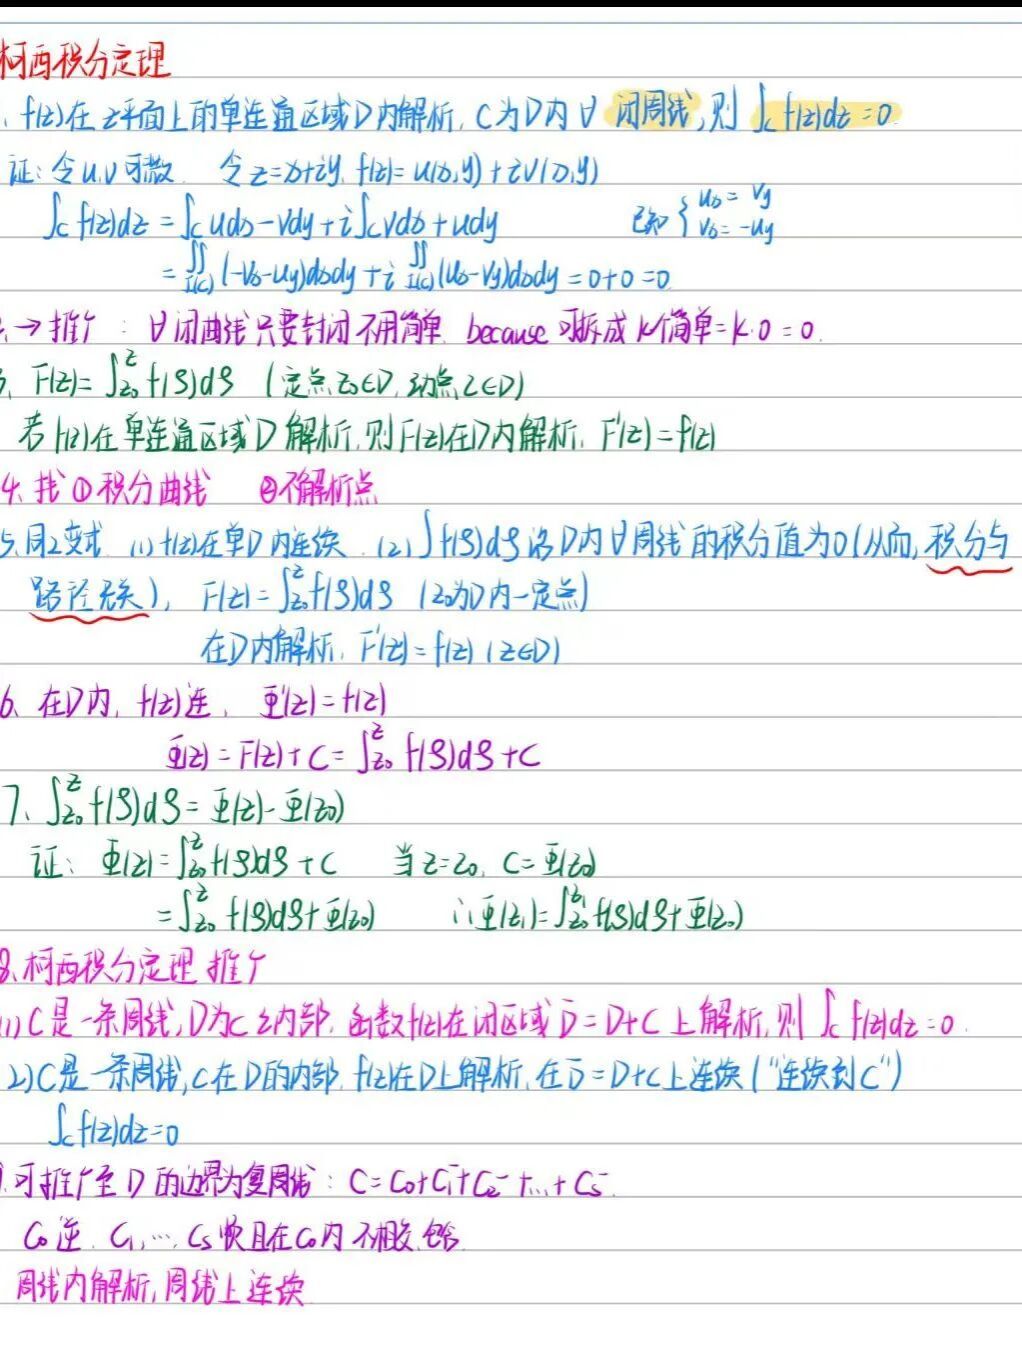 柯西积分定理
1. f(z)在z平面上的单连通区域D内解析, C为D内∀闭周线,则∫_C f(z)dz=0
证: 令u,v可微. 令z=x+iy, f(z)=u(x,y)+iv(x,y)
∫_C f(z)dz=∫_C udx-vdy+i∫_C vdx+udy 已知{u_x=v_y v_x=-u_y
=∬_{I(C)}(-v_x-u_y)dxdy+i∬_{I(C)}(u_x-v_y)dxdy=0+0=0
2.→推广: ∀闭曲线只要封闭不用简单. because 可拆成k个简单=k·0=0.
3. F(z)=∫_{z₀}^{z}f(ζ)dζ (定点z₀∈D,动点z∈D)
若f(z)在单连通区域D解析,则F(z)在D内解析, F'(z)=f(z)
4. 找①积分曲线 ②不解析点
5.同2变式 (1)f(z)在单D内连续. (2)∫f(ζ)dζ沿D内∀周线的积分值为0(从而,积分与
路径无关), F(z)=∫_{z₀}^{z}f(ζ)dζ (z₀为D内一定点)
在D内解析, F'(z)=f(z) (z∈D)
6. 在D内, f(z)连, Φ'(z)=f(z)
Φ(z)=F(z)+C=∫_{z₀}^{z}f(ζ)dζ+C
7. ∫_{z₀}^{z}f(ζ)dζ=Φ(z)-Φ(z₀)
证: Φ(z)=∫_{z₀}^{z}f(ζ)dζ+C 当z=z₀, C=Φ(z₀)
=∫_{z₀}^{z}f(ζ)dζ+Φ(z₀) ∴Φ(z₁)=∫_{z₀}^{z₁}f(ζ)dζ+Φ(z₀)
8.柯西积分定理 推广
(1)C是一条周线,D为C之内部, 函数f(z)在闭区域D̅=D+C上解析,则∫_C f(z)dz=0.
(2)C是一条周线,C在D的内部, f(z)在D上解析,在D̅=D+C上连续("连续到C")
∫_C f(z)dz=0
9.可推广至D的边界为复周线: C=C₀+C₁⁻+C₂⁻+...+C_s⁻.
C₀逆, C₁,…,C_s顺且在C₀内不相交,包含.
周线内解析,周线上连续